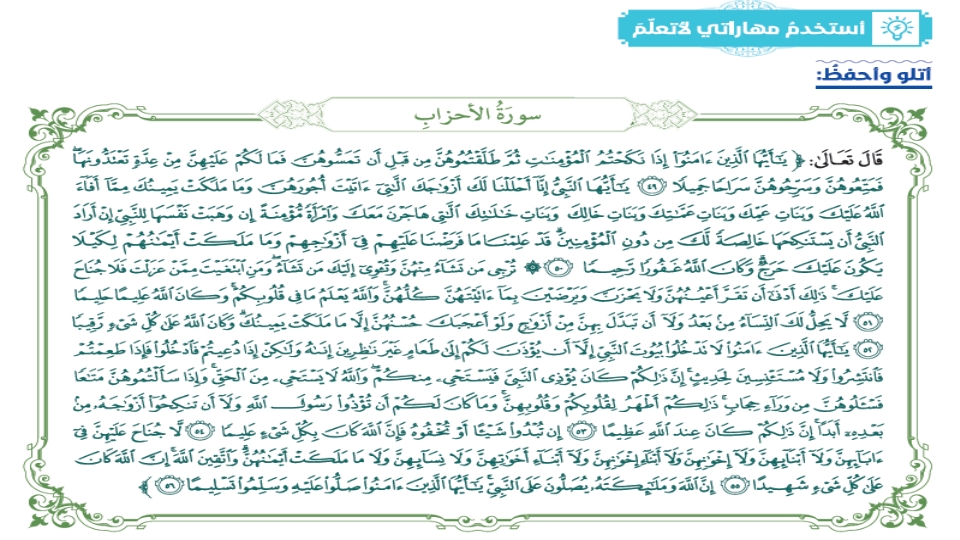 أستخدمُ مهاراتي لأتعلّمَ
أتلو وأحفظُ:
سورَةُ الأحزابِ
قَالَ تَعَالَى: ﴿ يَٰٓأَيُّهَا ٱلَّذِينَ ءَامَنُوٓاْ إِذَا نَكَحۡتُمُ ٱلۡمُؤۡمِنَٰتِ ثُمَّ طَلَّقۡتُمُوهُنَّ مِن قَبۡلِ أَن تَمَسُّوهُنَّ فَمَا لَكُمۡ عَلَيۡهِنَّ مِنۡ عِدَّةٖ تَعۡتَدُّونَهَاۖ
فَمَتِّعُوهُنَّ وَسَرِّحُوهُنَّ سَرَاحٗا جَمِيلٗا ٤٩ يَٰٓأَيُّهَا ٱلنَّبِيُّ إِنَّآ أَحۡلَلۡنَا لَكَ أَزۡوَٰجَكَ ٱلَّٰتِيٓ ءَاتَيۡتَ أُجُورَهُنَّ وَمَا مَلَكَتۡ يَمِينُكَ مِمَّآ أَفَآءَ
ٱللَّهُ عَلَيۡكَ وَبَنَاتِ عَمِّكَ وَبَنَاتِ عَمَّٰتِكَ وَبَنَاتِ خَالِكَ وَبَنَاتِ خَٰلَٰتِكَ ٱلَّٰتِي هَاجَرۡنَ مَعَكَ وَٱمۡرَأَةٗ مُّؤۡمِنَةً إِن وَهَبَتۡ نَفۡسَهَا لِلنَّبِيِّ إِنۡ أَرَادَ
ٱلنَّبِيُّ أَن يَسۡتَنكِحَهَا خَالِصَةٗ لَّكَ مِن دُونِ ٱلۡمُؤۡمِنِينَۗ قَدۡ عَلِمۡنَا مَا فَرَضۡنَا عَلَيۡهِمۡ فِيٓ أَزۡوَٰجِهِمۡ وَمَا مَلَكَتۡ أَيۡمَٰنُهُمۡ لِكَيۡلَا
يَكُونَ عَلَيۡكَ حَرَجٞۗ وَكَانَ ٱللَّهُ غَفُورٗا رَّحِيمٗا ٥٠ ۞ تُرۡجِي مَن تَشَآءُ مِنۡهُنَّ وَتُـٔۡوِيٓ إِلَيۡكَ مَن تَشَآءُۖ وَمَنِ ٱبۡتَغَيۡتَ مِمَّنۡ عَزَلۡتَ فَلَا جُنَاحَ
عَلَيۡكَۚ ذَٰلِكَ أَدۡنَىٰٓ أَن تَقَرَّ أَعۡيُنُهُنَّ وَلَا يَحۡزَنَّ وَيَرۡضَيۡنَ بِمَآ ءَاتَيۡتَهُنَّ كُلُّهُنَّۚ وَٱللَّهُ يَعۡلَمُ مَا فِي قُلُوبِكُمۡۚ وَكَانَ ٱللَّهُ عَلِيمًا حَلِيمٗا
٥١ لَّا يَحِلُّ لَكَ ٱلنِّسَآءُ مِنۢ بَعۡدُ وَلَآ أَن تَبَدَّلَ بِهِنَّ مِنۡ أَزۡوَٰجٖ وَلَوۡ أَعۡجَبَكَ حُسۡنُهُنَّ إِلَّا مَا مَلَكَتۡ يَمِينُكَۗ وَكَانَ ٱللَّهُ عَلَىٰ كُلِّ شَيۡءٖ رَّقِيبٗا
٥٢ يَٰٓأَيُّهَا ٱلَّذِينَ ءَامَنُواْ لَا تَدۡخُلُواْ بُيُوتَ ٱلنَّبِيِّ إِلَّآ أَن يُؤۡذَنَ لَكُمۡ إِلَىٰ طَعَامٍ غَيۡرَ نَٰظِرِينَ إِنَىٰهُ وَلَٰكِنۡ إِذَا دُعِيتُمۡ فَٱدۡخُلُواْ فَإِذَا طَعِمۡتُمۡ
فَٱنتَشِرُواْ وَلَا مُسۡتَـٔۡنِسِينَ لِحَدِيثٍۚ إِنَّ ذَٰلِكُمۡ كَانَ يُؤۡذِي ٱلنَّبِيَّ فَيَسۡتَحۡيِۦ مِنكُمۡۖ وَٱللَّهُ لَا يَسۡتَحۡيِۦ مِنَ ٱلۡحَقِّۚ وَإِذَا سَأَلۡتُمُوهُنَّ مَتَٰعٗا
فَسۡـَٔلُوهُنَّ مِن وَرَآءِ حِجَابٖۚ ذَٰلِكُمۡ أَطۡهَرُ لِقُلُوبِكُمۡ وَقُلُوبِهِنَّۚ وَمَا كَانَ لَكُمۡ أَن تُؤۡذُواْ رَسُولَ ٱللَّهِ وَلَآ أَن تَنكِحُوٓاْ أَزۡوَٰجَهُۥ مِنۢ
بَعۡدِهِۦٓ أَبَدًاۚ إِنَّ ذَٰلِكُمۡ كَانَ عِندَ ٱللَّهِ عَظِيمًا ٥٣ إِن تُبۡدُواْ شَيۡـًٔا أَوۡ تُخۡفُوهُ فَإِنَّ ٱللَّهَ كَانَ بِكُلِّ شَيۡءٍ عَلِيمٗا ٥٤ لَّا جُنَاحَ عَلَيۡهِنَّ فِيٓ
ءَابَآئِهِنَّ وَلَآ أَبۡنَآئِهِنَّ وَلَآ إِخۡوَٰنِهِنَّ وَلَآ أَبۡنَآءِ إِخۡوَٰنِهِنَّ وَلَآ أَبۡنَآءِ أَخَوَٰتِهِنَّ وَلَا نِسَآئِهِنَّ وَلَا مَا مَلَكَتۡ أَيۡمَٰنُهُنَّۗ وَٱتَّقِينَ ٱللَّهَۚ إِنَّ ٱللَّهَ كَانَ
عَلَىٰ كُلِّ شَيۡءٖ شَهِيدًا ٥٥ إِنَّ ٱللَّهَ وَمَلَٰٓئِكَتَهُۥ يُصَلُّونَ عَلَى ٱلنَّبِيِّۚ يَٰٓأَيُّهَا ٱلَّذِينَ ءَامَنُواْ صَلُّواْ عَلَيۡهِ وَسَلِّمُواْ تَسۡلِيمًا ٥٦ ﴾